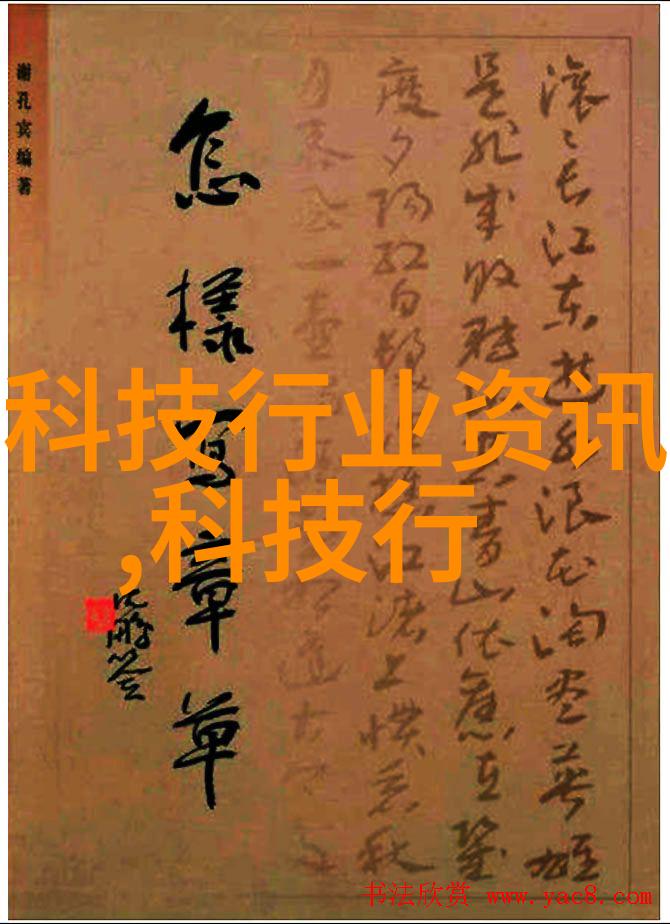 滚〻长江东逝水浪花淘尽英雄
是非成败转头空青山依旧在几
度夕阳红白发渔樵江渚上惯看秋
月春风一壶
怎樣寫章草
谢孔宾编著
科技行业资讯
,科技行
书法欣赏 www.yac8.com